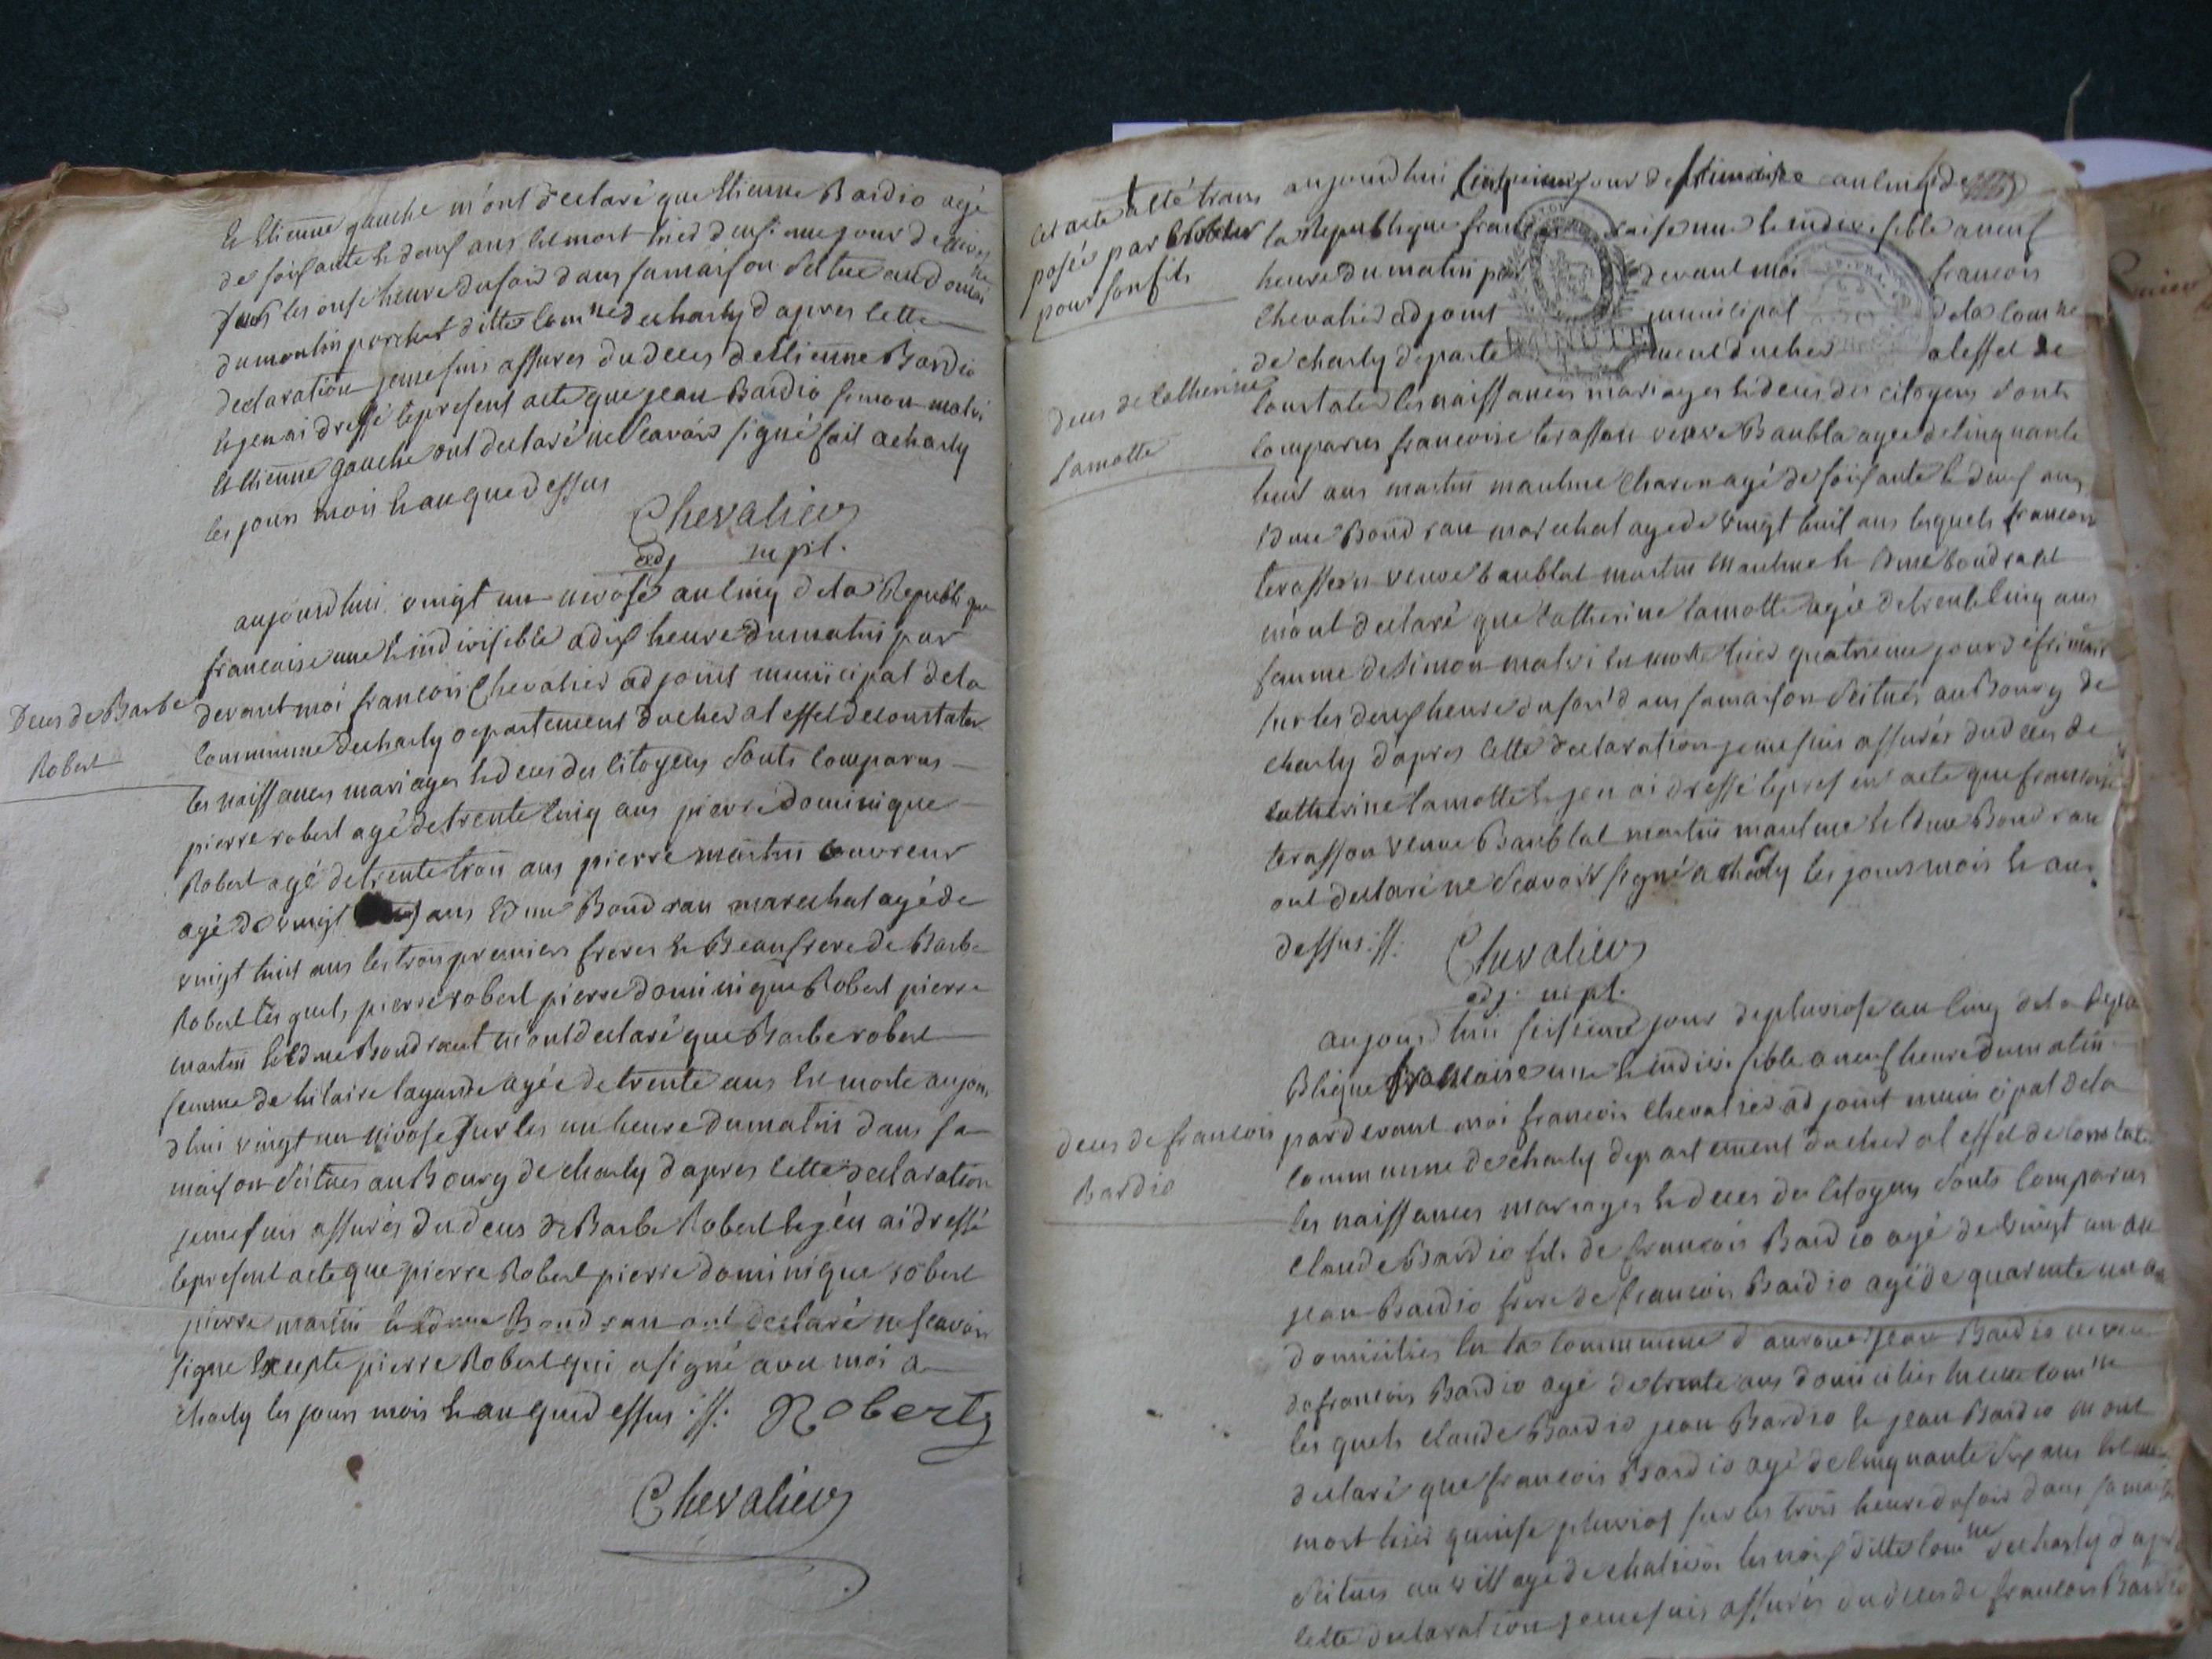 et Etienne gauche m'ont declaré que Etienne Bardio agé
de soixante et deux ans est mort hier deusieme jour de
sur les onse heure du soir dans sa maison scitue au domai ne
du moulin porcher ditte com ne de charly d'apres cette
declaration je me suis assures du deces de Etienne Bardio
et jen ai dressé le present acte que jean Bardio simon malvi
et Etienne gauche ont declaré ne scavoir signé fait a charly
les jours mois et an que dessus
Chevalier
adj mpl.
aujourdhui vingt un nivose an cinq de la Republique
francaise une et indivisible a dix heure du matin par
devant moi francois Chevalier adjoint municipal de la
commune de charly departement du cher a l effet de constater
les naissances mariages et deces des citoyens sonts comparus
Deces de Barbe
Robert
pierre robert agé de trente cinq ans pierre dominique
Robert agé de trente trois ans pierre martin couvreur
agé de vingt ans Edme Boudrau marechal agé de
vingt huit ans les trois premiers freres et Beaufrere de Barbe
Robert les quels pierre robert pierre dominique Robert pierre
martin et Edme Boudraut m'ont declaré que Barbe robert
femme de hilaire lagarde agée de trente ans est morte aujour
dhui vingt un nivose sur les un heure du matin dans sa
maison scitues au Bourg de charly d'apres cette declaration
je me suis assurés du deces de Barbe Robert et jen ai dressé
le present acte que pierre Robert pierre dominique robert
pierre martin et Edme Boudrau ont declaré ne scavoir
signe Excepte pierre Robert qui a signé avec moi a
charly les jours mois et an que dessus :ff: Robert
Chevalier
cet acte a été trans
posée par erreur
pour son fils
aujourdhui cinquieme jour de frimaire an cinq de
la Republique francaise une et indivisible a neuf
heure du matin par devant moi francois
Chevalier adjoint municipal de la com ne
de charly departement du cher a l effet de
MINUTE
Deces de Catherine
lamotte
constater les naissances mariages et deces des citoyens sonts
comparus francoise terasson veuve Baubla agée de cinquante
huit ans martin maulme charon agé de soixante et deux ans
Edme Boudrau marechal agé de vingt huit ans lesquels francoise
terasson veuve baublat martin maulme et Edme boudraut
m'ont declaré que Catherine lamotte agée de trente cinq ans
femme de simon malvi est morte hier quatrieme jour de frimaire
sur les deux heure du soir dans sa maison scitués au Bourg de
charly d'apres cette declaration je me suis assurés du deces de
catherine lamotte et jen ai dressé le present acte que francoise
terasson veuve Baublat martin maulme et Edme Boudrau
ont declaré ne scavoir signé a charly les jours mois et an
dessus :ff: Chevalier
adj. mpl.
aujourdhui seisieme jour de pluviose an cinq de la Repu
Blique francaise une et indivisible a neuf heure du matin
deces de francois
Bardio
par devant moi francois chevalier adjoint municipal de la
commune de charly departement du cher a l effet de constater
les naissances mariages et deces des citoyens sonts comparus
claude Bardio fils de francois Bardio agé de vingt un an
jean Bardio frere de francois Bardio agé de quarente un an
domicilies en la commune d jean Bardio neveu
de francois Bardio agé de trente ans domicilies en cette com ne
les quels claude Bardio jean Bardio et jean Bardio m'ont
declaré que francois Bardio agé de cinquante six ans est
mort hier quinse pluviose sur les trois heure du soir dans sa maison
scitues au village de chalivoi les noix ditte com ne de charly d'apres
cette declaration je me suis assurés du deces de francois Bardio